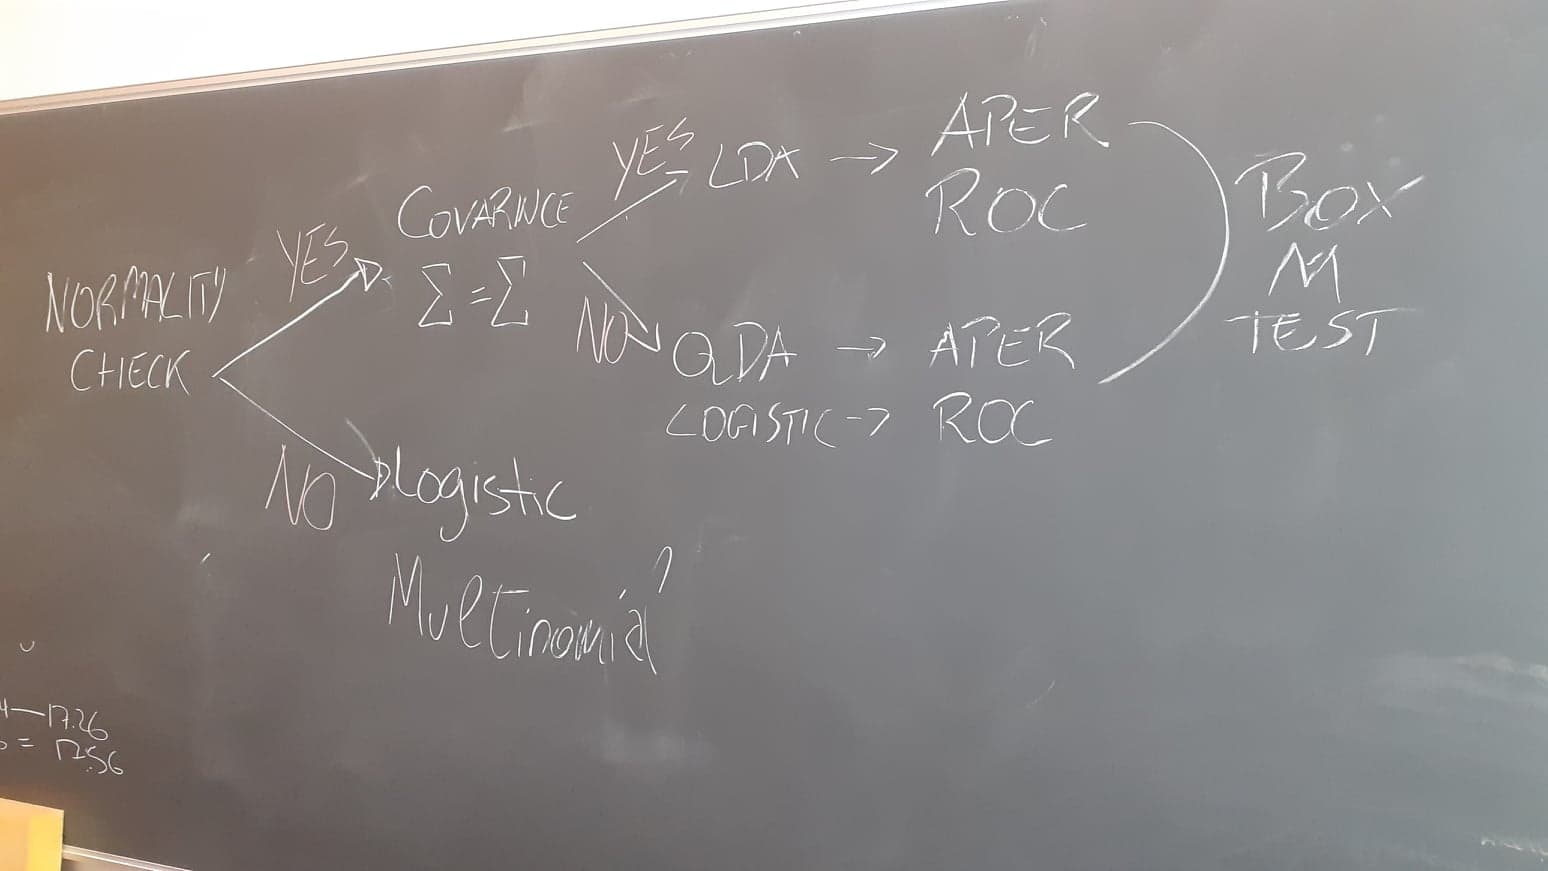 NORMALITY
CHECK
YES
COVARINCE
Σ = Σ
YES
LDA → APER
ROC
NO
QDA → APER
LOGISTIC → ROC
BOX
M
TEST
NO
Logistic
Multinomial
— 17.26
= 17.56